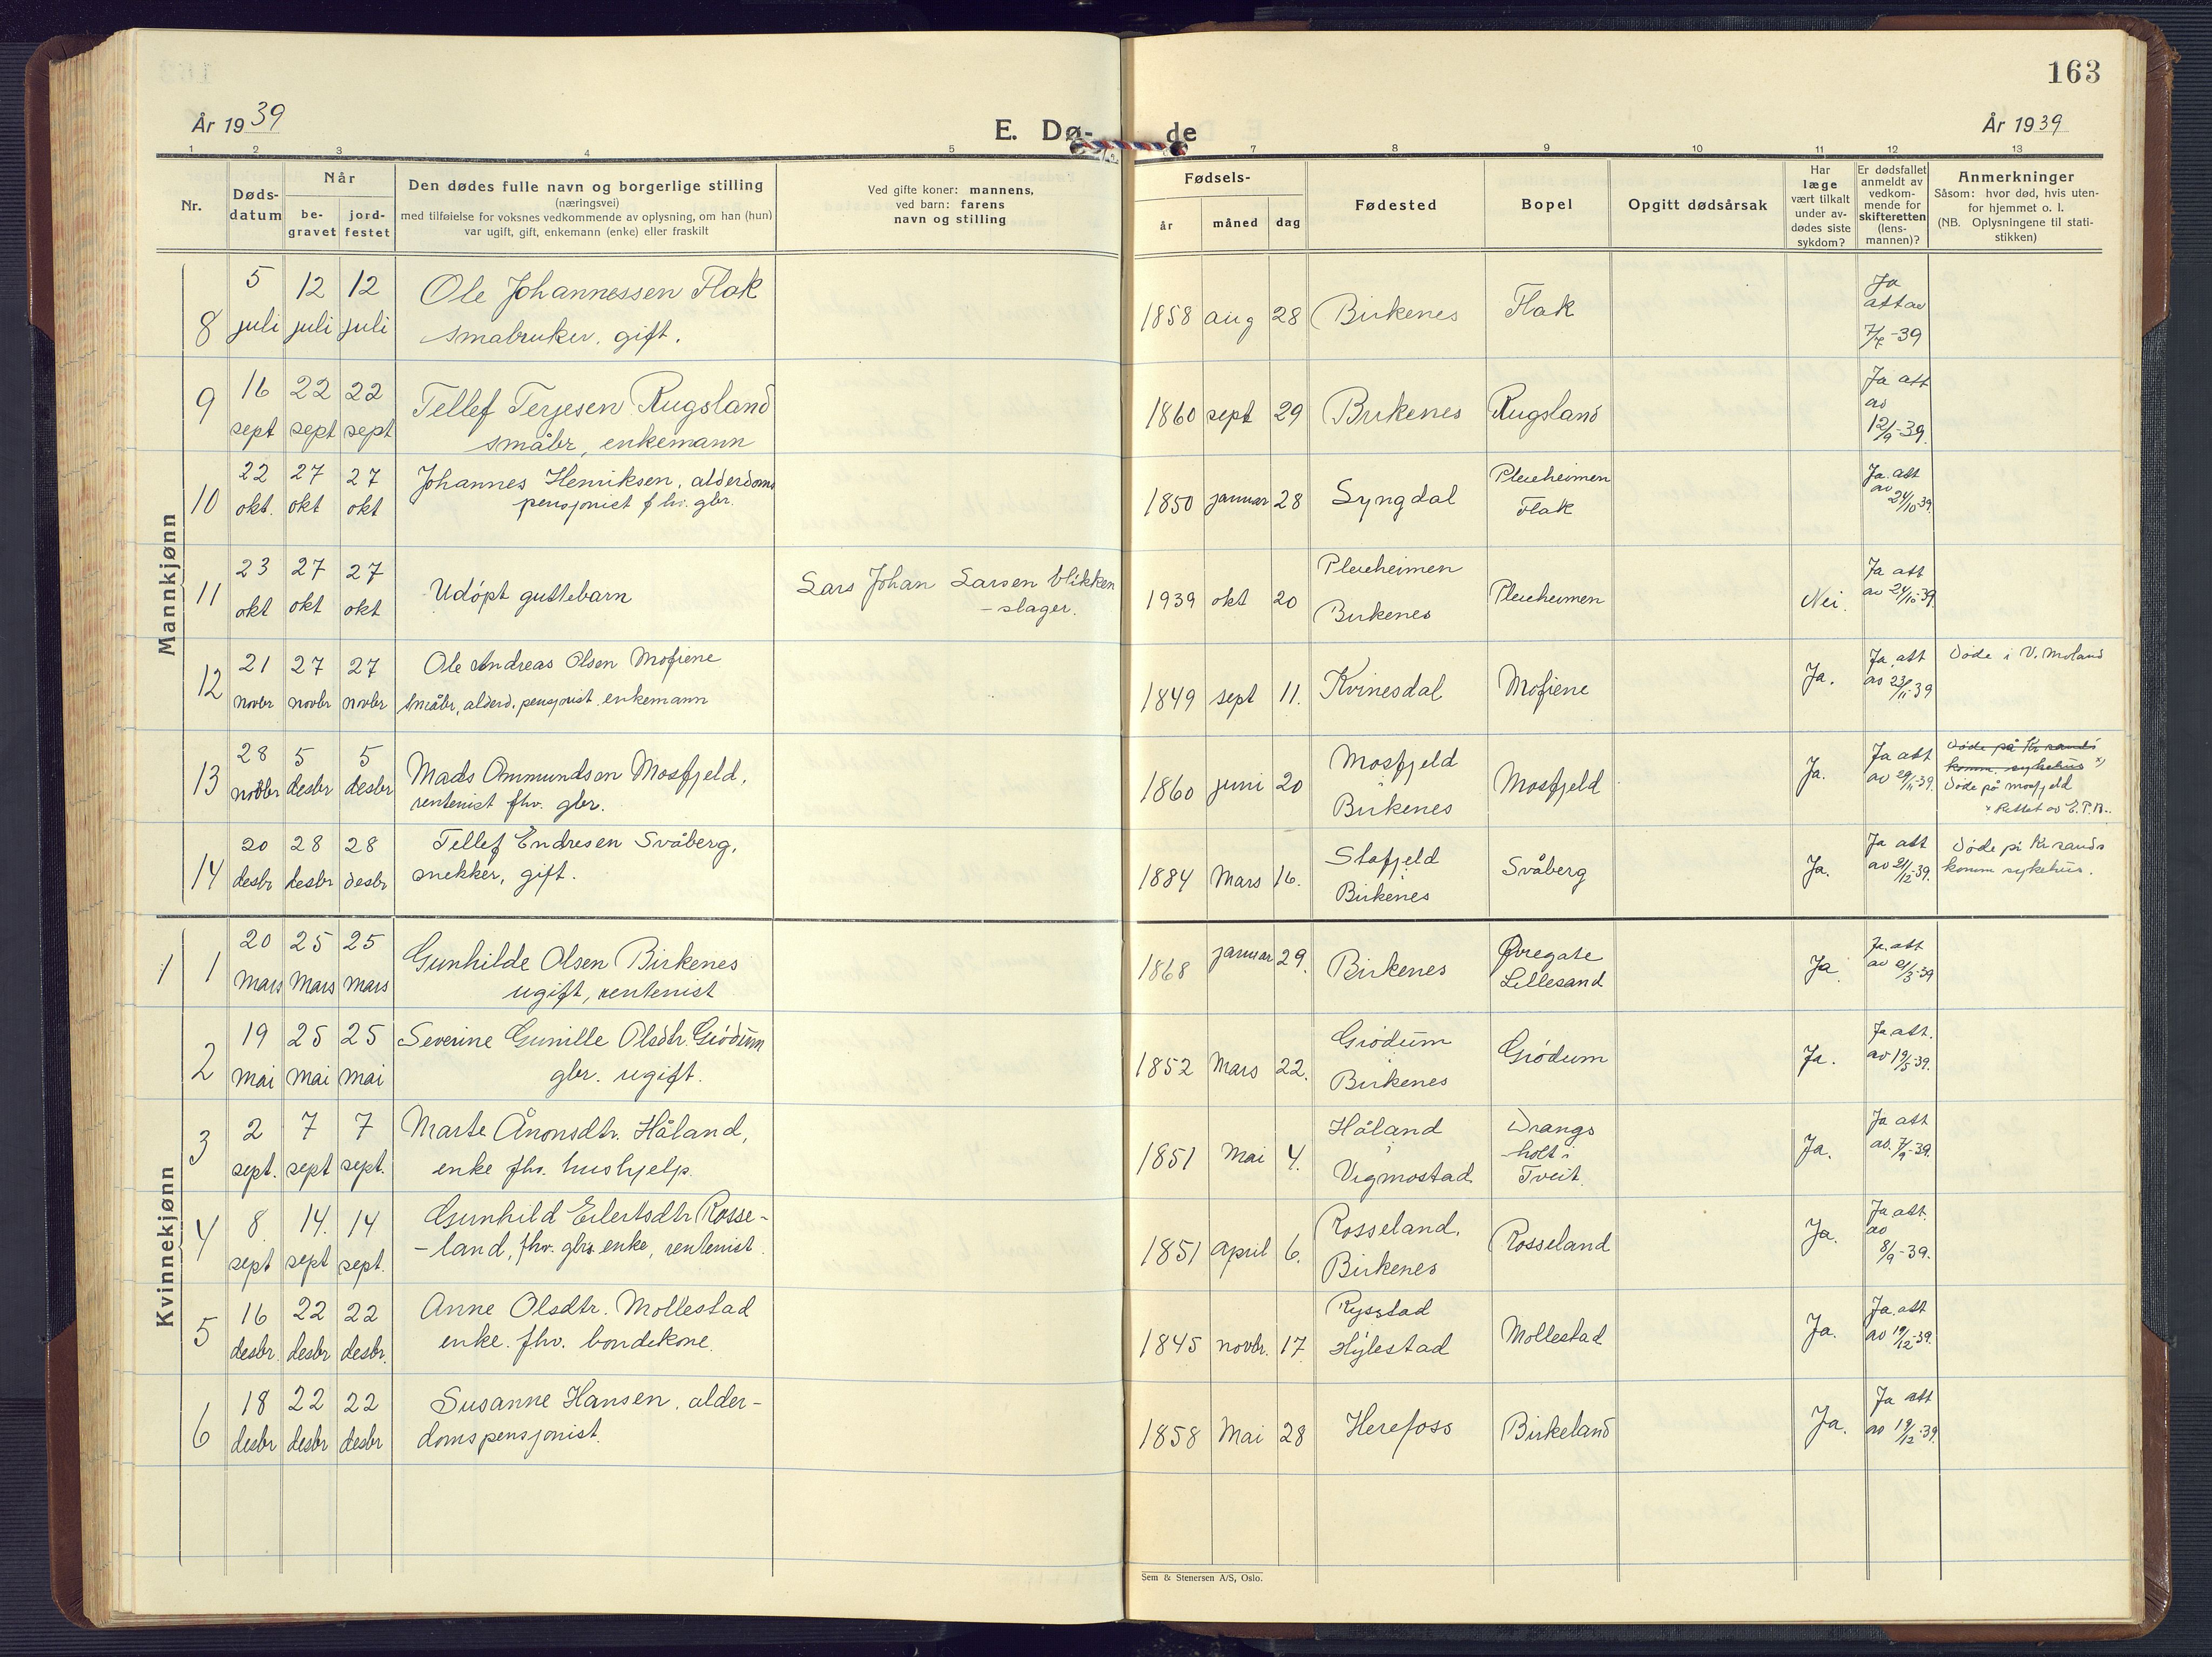 163
År 1939
E. Dø-
de
År 1939
1 2 3 4 5 7 8 9 10 11 12 13
Nr.
Døds-
datum
Når
be-
gravet
jord-
festet
Den dødes fulle navn og borgerlige stilling
(næringsvei)
med tilføielse for voksnes vedkommende av oplysning, om han (hun)
var ugift, gift, enkemann (enke) eller fraskilt
Ved gifte koner: mannens,
ved barn: farens
navn og stilling
Fødsels-
år måned dag
Fødested
Bopel
Opgitt dødsårsak
Har
læge
vært tilkalt
under av-
dødes siste
sykdom?
Er dødsfallet
anmeldt av
vedkom-
mende for
skifteretten
(lens-
mannen)?
Anmerkninger
Såsom: hvor død, hvis uten-
for hjemmet o. l.
(NB. Oplysningene til stati-
stikken)
Mannkjønn
8 5 juli 12 juli 12 juli Ole Johannessen Flak
småbruker, gift.
1858 aug 28 Birkenes Flak
Ja
att av
7/7-39
9 16 sept 22 sept 22 sept Tellef Terjesen Rugsland
småbr, enkemann
1860 sept 29 Birkenes Rugsland
Ja att
av
12/9-39.
10 22 okt. 27 okt 27 okt Johannes Henriksen, alderdoms
pensjonist fhv. gbr.
1850 januar 28 Lyngdal
Pleieheimen
Flak
Ja. att
av 24/10-39.
11 23 okt 27 okt 27 okt Udöpt guttebarn
Lars Johan Larsen blikken
-slager.
1939 okt 20
Pleieheimen
Birkenes
Pleieheimen
Nei.
Ja att
av 24/10-39.
12 21 novbr 27 novbr 27 novbr Ole Andreas Olsen Mofjene
småbr, alderd. pensjonist enkemann
1849 sept 11. Kvinesdal Mofjene Ja.
Ja. att
av 23/11-39
Döde i V. Moland
13 28 novbr 5 desbr 5 desbr Mads Ommundsen Mosfjeld,
rentenist fhv. gbr.
1860 juni 20
Mosfjeld
i
Birkenes
Mosfjeld Ja.
Ja att
av 29/11-39.
Döde på Kr.sands
komm. sykehus x)
Döde på Mosfjeld
x Rettet av E.T.B..
14 20 desbr 28 desbr 28 desbr Tellef Endresen Svåberg,
snekker, gift.
1884 Mars 16.
Stafjeld
i
Birkenes
Svåberg Ja.
Ja att
av 21/12-39.
Döde på Kr.sands
komm sykehus.
Kvinnekjønn
1 1 20 Mars 25 Mars 25 Mars Gunhilde Olsen Birkenes
ugift, rentenist
1868 januar 29. Birkenes
Øvregate
Lillesand
Ja
Ja. att
av 21/3-39
2 19 Mai 25 Mai 25 Mai Severine Gunille Olsdtr Grödum
gbr. ugift.
1852 Mars 22.
Grödum
i
Birkenes
Grödum Ja.
Ja. att.
av 19/5-39.
3 2 sept. 7 sept 7 sept. Marte Ånonsdtr. Håland,
enke fhv. hushjelp.
1851 Mai 4.
Håland
i
Vigmostad
Drangs
-holt i
Tveit.
Ja.
Ja att
av. 7/9-39.
4 8. sept 14. sept 14 sept. Gunhild Eilertsdtr Rosse-
-land, fhv. gbrs enke, rentenist.
1851 April 6.
Rosseland,
Birkenes
Rosseland Ja.
Ja. att.
av
8/9-39.
5 16 desbr. 22 desbr 22 desbr. Anne Olsdtr. Mollestad
enke. fhv. bondekone.
1845 novbr. 17
Rysstad
Hylestad
Mollestad Ja.
Ja. att
av 19/12-39.
6 18 desbr 22 desbr 22 desbr Susanne Hansen, alder-
domspensjonist.
1858 Mai 28 Herefoss Birkeland Ja.
Ja att
av 19/12-39.
Sem & Stenersen A/S, Oslo.